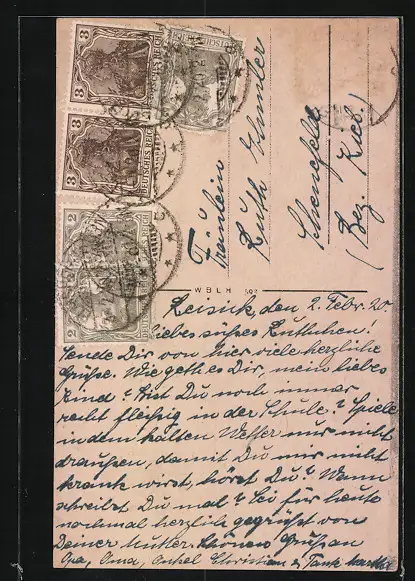 3
DEUTSCHES REICH
3
DEUTSCHES REICH
2
2
Fräulein
Ruth
Schenefeld
(Bez. Kiel.)
W.B.L.H
den 2. Febr. 20.
Liebes süßes Ruthchen!
Sende Dir von hier viele herzliche
Grüße. Wie geht es Dir, mein liebes
Kind? Bist Du noch immer
recht fleißig in der Schule? Spiele
in dem kalten Wetter nur nicht
draußen, damit Du mir nicht
krank wirst, hörst Du? Wann
schreibst Du mal? Sei für heute
nochmal herzlich gegrüßt von
Deiner Mutter. Schönen Gruß an
Opa, Oma, Onkel Christian & Tante Martha